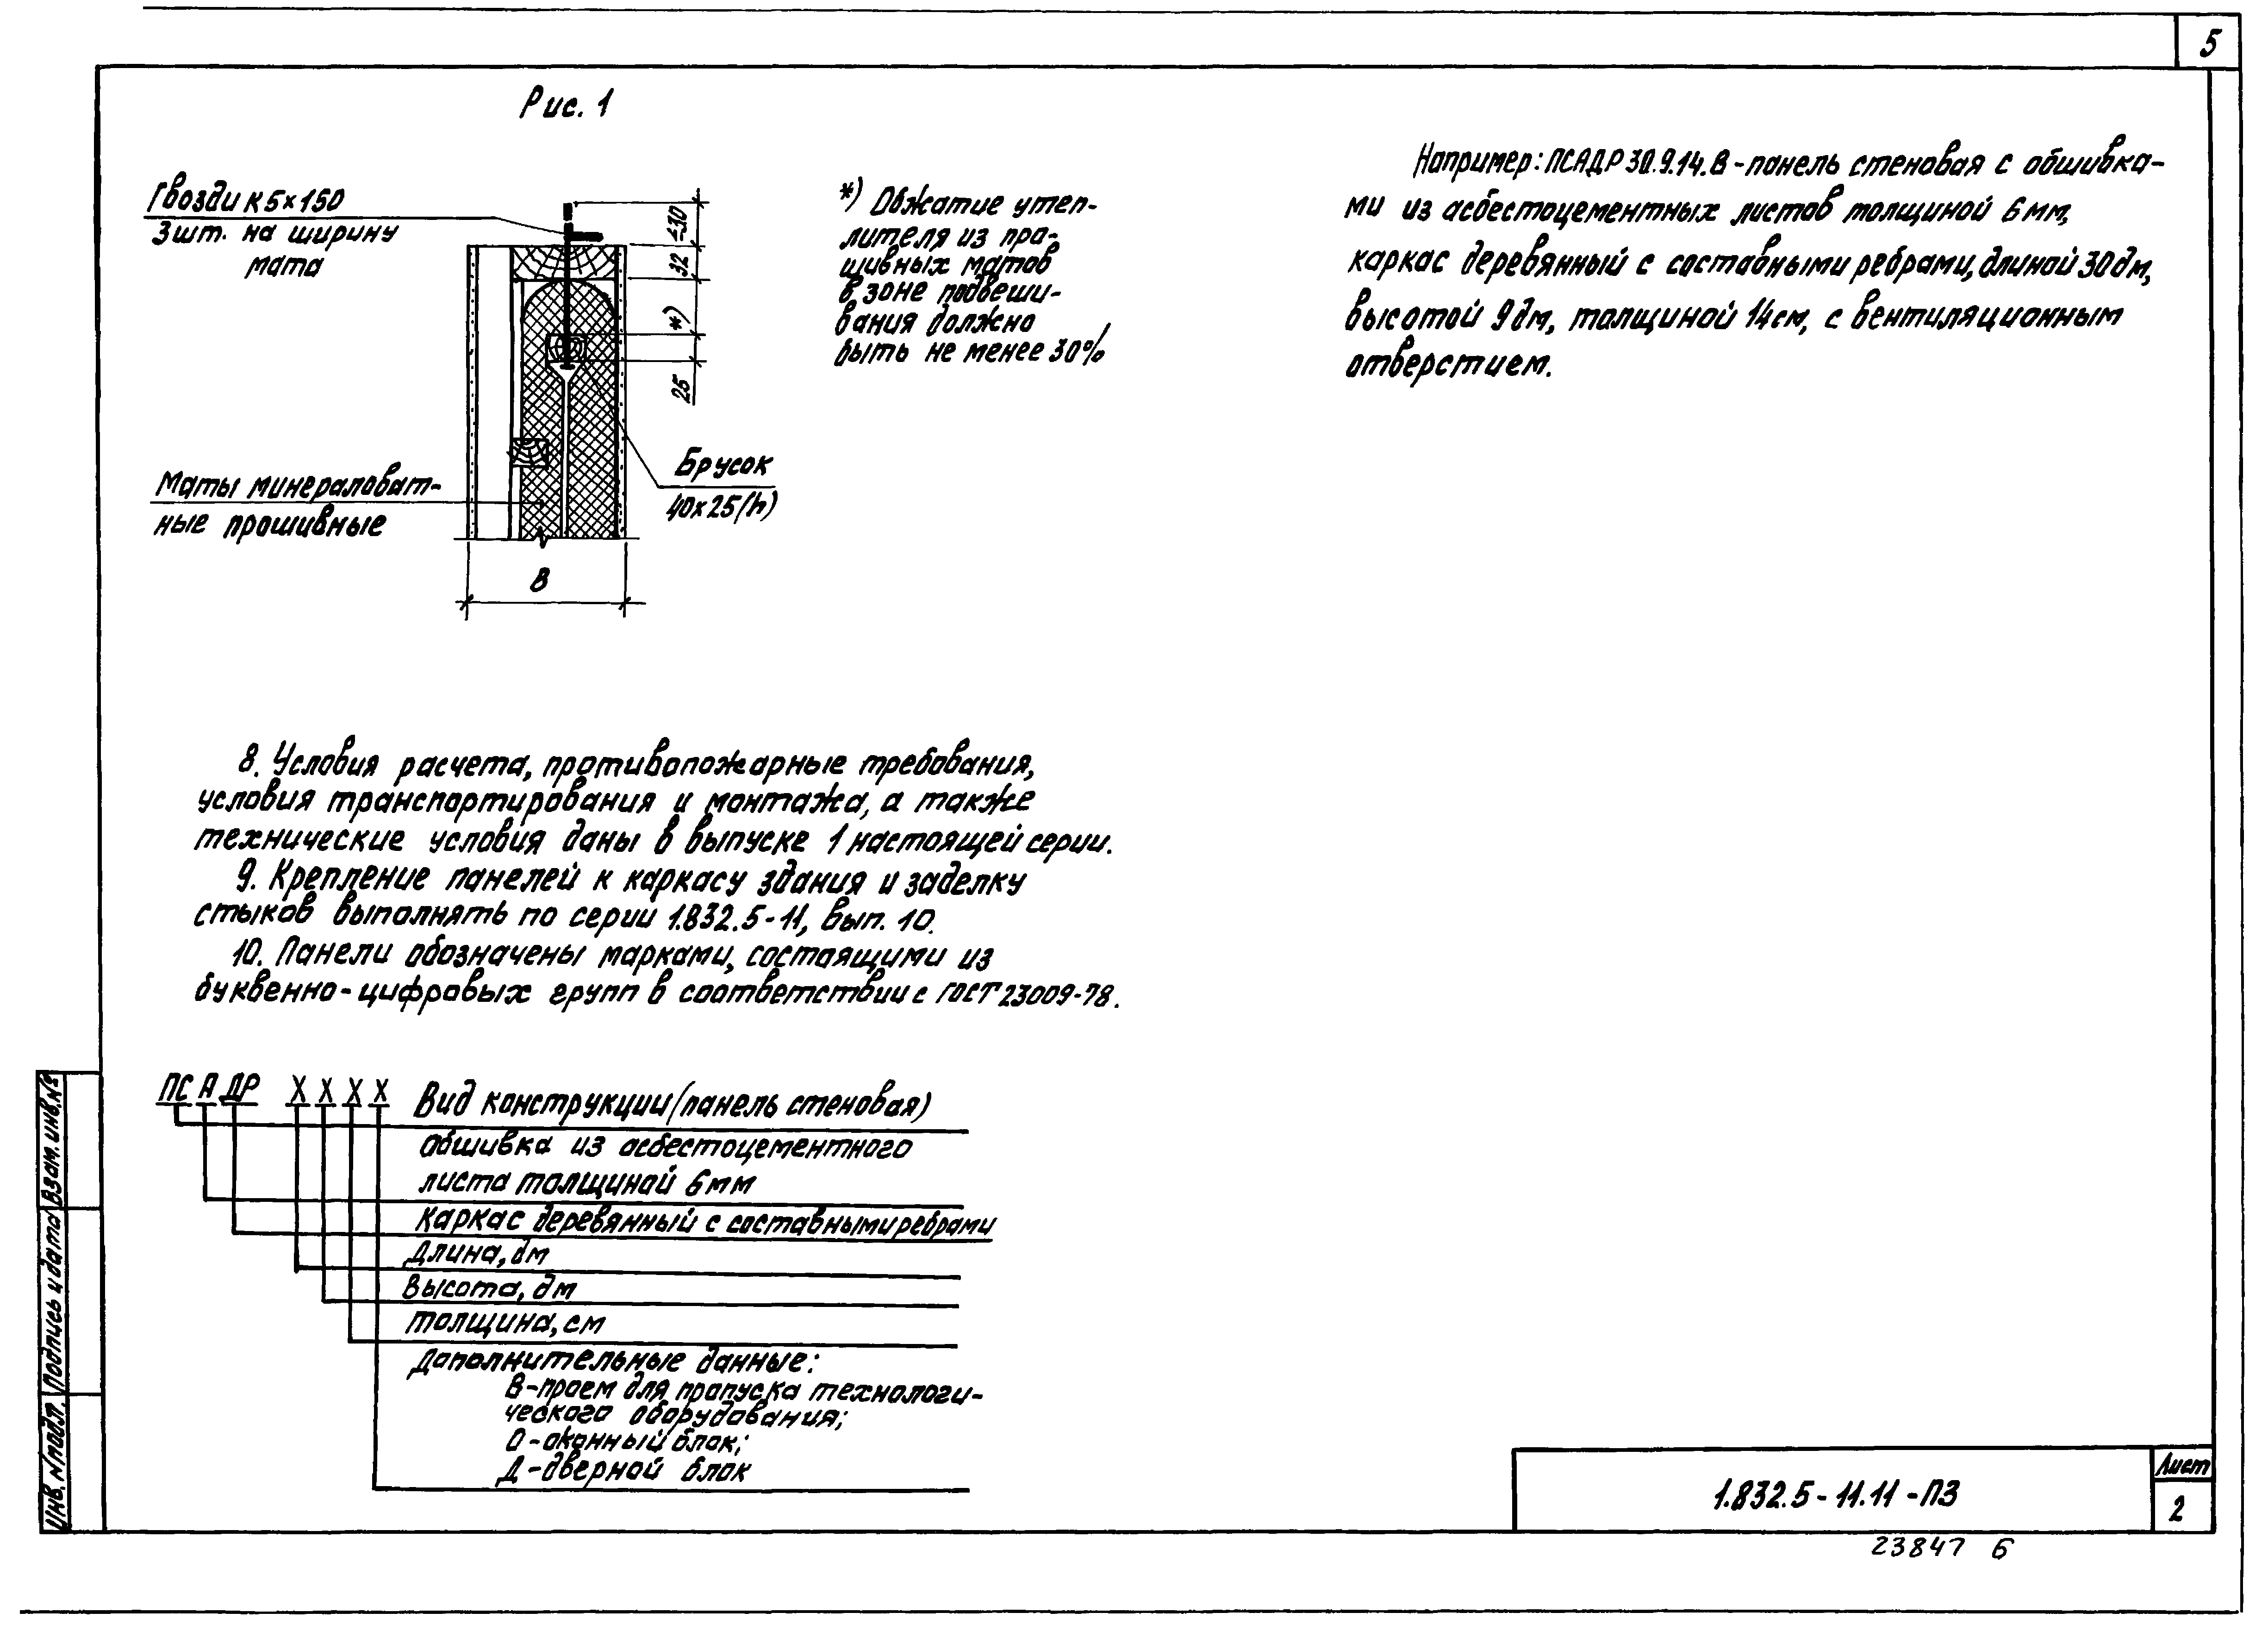 5
Рис. 1
Гвозди К5×150
3шт. на ширину
мата
≥30
32
*)
25
*) Обжатие утеп-
лителя из про-
шивных матов
в зоне подвеши-
вания должно
быть не менее 30%
Брусок
40×25(h)
Маты минераловат-
ные прошивные
В
Например: ПСАДР 30.9.14.В - панель стеновая с обшивка-
ми из асбестоцементных листов толщиной 6мм,
каркас деревянный с составными ребрами, длиной 30дм,
высотой 9дм, толщиной 14см, с вентиляционным
отверстием.
8. Условия расчета, противопожарные требования,
условия транспортирования и монтажа, а также
технические условия даны в выпуске 1 настоящей серии.
9. Крепление панелей к каркасу здания и заделку
стыков выполнять по серии 1.832.5-11, вып. 10.
10. Панели обозначены марками, состоящими из
буквенно-цифровых групп в соответствии с ГОСТ 23009-78.
ПС А ДР Х Х Х Х
Вид конструкции (панель стеновая)
Обшивка из асбестоцементного
листа толщиной 6мм
Каркас деревянный с составными ребрами
Длина, дм
Высота, дм
Толщина, см
Дополнительные данные:
В-проем для пропуска технологи-
ческого оборудования;
О-оконный блок;
Д-дверной блок
Инв. № подл.
Подпись и дата
Взам. инв. №
1.832.5-11.11-ПЗ
Лист
2
23847 6